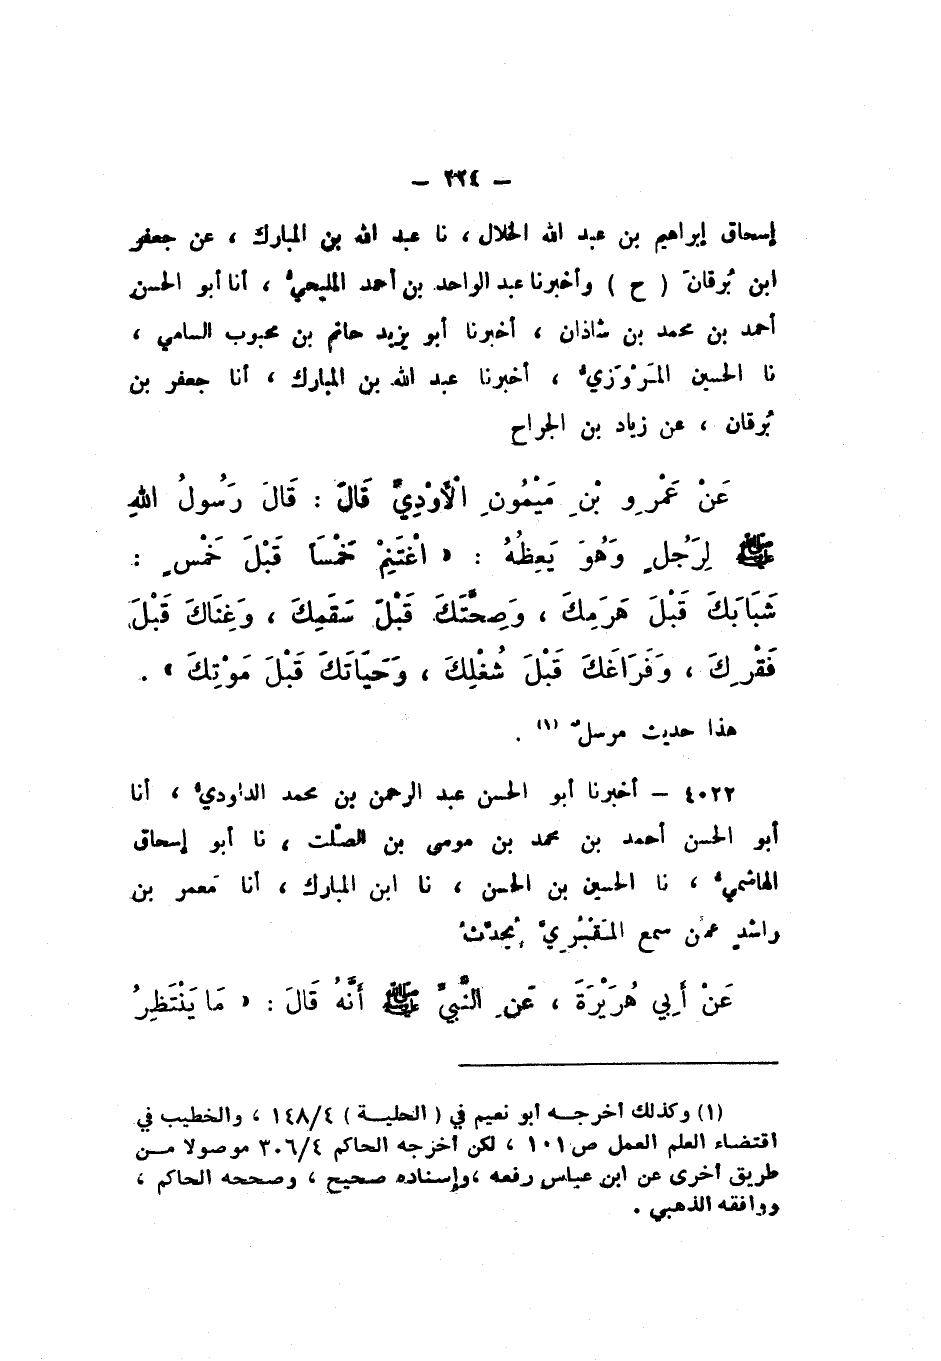 – ٢٢٤ –
إسحاق إبراهيم بن عبد الله الخلال ، نا عبد الله بن المبارك ، عن جعفر
ابن بُرقانَ ( ح ) وأخبرنا عبد الواحد بن أحمد المليحيُّ ، أنا أبو الحسن
أحمد بن محمد بن شاذان ، أخبرنا أبو يزيد حاتم بن محبوب السامي ،
نا الحسين المَرْوَزيُّ ، أخبرنا عبد الله بن المبارك ، أنا جعفر بن
بُرقان ، عن زياد بن الجراح
عَنْ عَمْرِو بْنِ مَيْمُونِ الْأَوْدِيِّ قَالَ : قَالَ رَسُولُ اللهِ
ﷺ لِرَجُلٍ وَهُوَ يَعِظُهُ : « اغْتَنِمْ خَمْسَاً قَبْلَ خَمْسٍ :
شَبَابَكَ قَبْلَ هَرَمِكَ ، وَصِحَّتَكَ قَبْلَ سَقَمِكَ ، وَغِنَاكَ قَبْلَ
فَقْرِكَ ، وَفَرَاغَكَ قَبْلَ شُغْلِكَ ، وَحَيَاتَكَ قَبْلَ مَوْتِكَ » .
هذا حديث مرسلٌ (١) .
٤٠٢٢ – أخبرنا أبو الحسن عبد الرحمن بن محمد الداوديُّ ، أنا
أبو الحسن أحمد بن محمد بن موسى بن الصّلت ، نا أبو إسحاق
الهاشميُّ ، نا الحسين بن الحسن ، نا ابن المبارك ، أنا مَعمر بن
راشدٍ عمّن سمع المَقْبُرِيَّ يُحدّثُ
عَنْ أَبِي هُرَيْرَةَ ، عَنِ النَّبِيِّ ﷺ أَنَّهُ قَالَ : « مَا يَنْتَظِرُ
(١) وكذلك أخرجه أبو نعيم في ( الحلية ) ١٤٨/٤ ، والخطيب في
اقتضاء العلم العمل ص١٠١ ، لكن أخرجه الحاكم ٣٠٦/٤ موصولا من
طريق أخرى عن ابن عباس رفعه ،وإسناده صحيح ، وصححه الحاكم ،
ووافقه الذهبي .